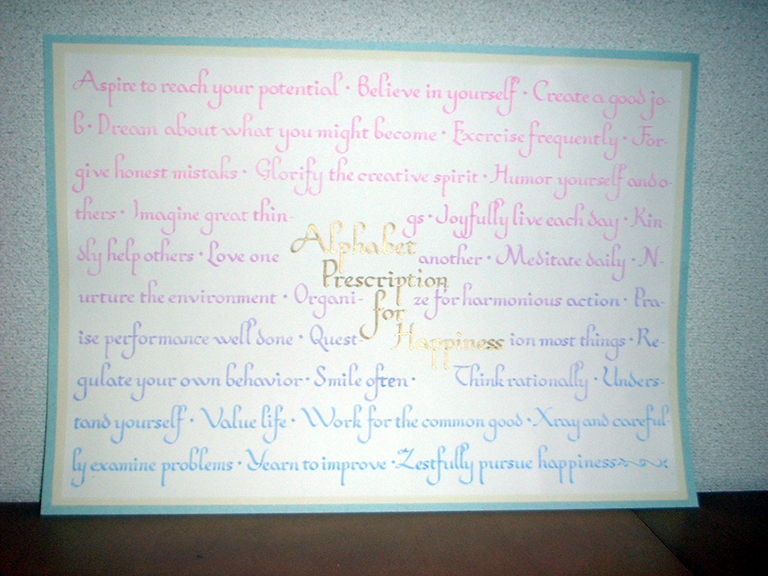 Aspire to reach your potential · Believe in yourself · Create a good jo-
b · Dream about what you might become · Exercise frequently · For-
give honest mistaks · Glorify the creative spirit · Humor yourself and o-
thers · Imagine great thin- gs · Joyfully live each day · Kin-
Alphabet
dly help others · Love one another · Meditate daily · N-
Prescription
urture the environment · Organi- ze for harmonious action · Pra-
for
ise performance well done · Quest- ion most things · Re-
Happiness
gulate your own behavior · Smile often · Think rationally · Unders-
tand yourself · Value life · Work for the common good · Xray and careful-
ly examine problems · Yearn to improve · Zestfully pursue happiness